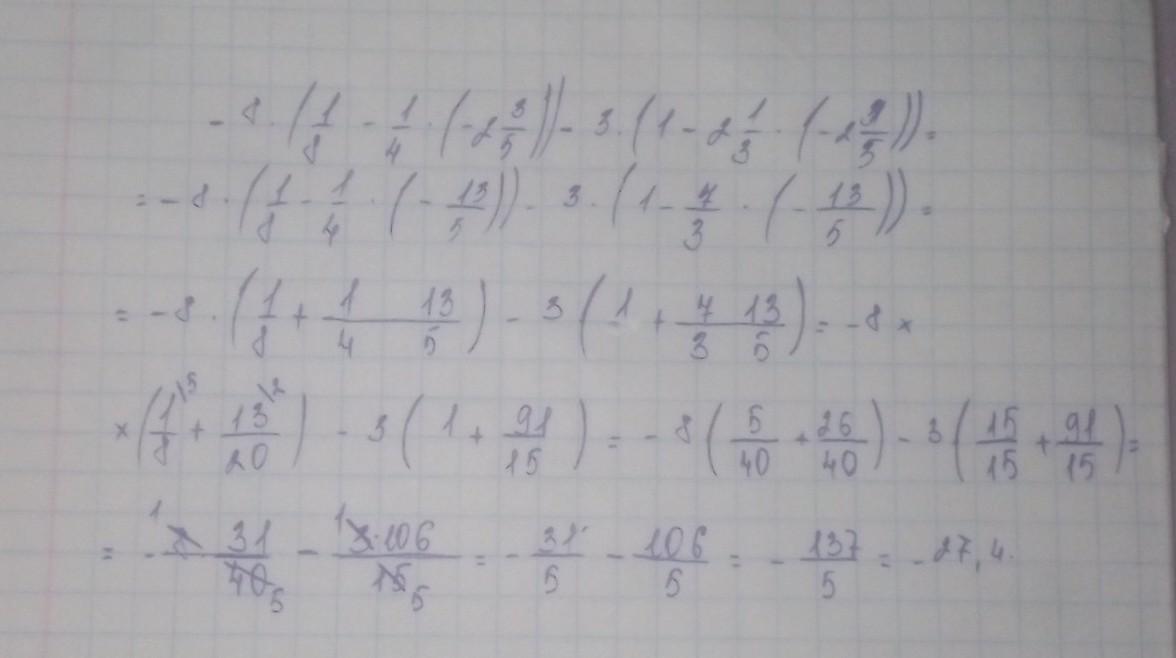 - 8 · (1/8 - 1/4 · (-2 3/5)) - 3 · (1 - 2 1/3 · (-2 3/5)) =
= - 8 · (1/8 - 1/4 · (- 13/5)) - 3 · (1 - 7/3 · (- 13/5)) =
= - 8 · (1/8 + 1 13/4 5) - 3 (1 + 7 13/3 5) = - 8 ×
× (1/8 \5 + 13/20 \2) - 3 (1 + 91/15) = - 8 (5/40 + 26/40) - 3 (15/15 + 91/15) =
= - 1 8 31/40 5 - 1 3·106/15 5 = - 31/5 - 106/5 = - 137/5 = - 27,4.